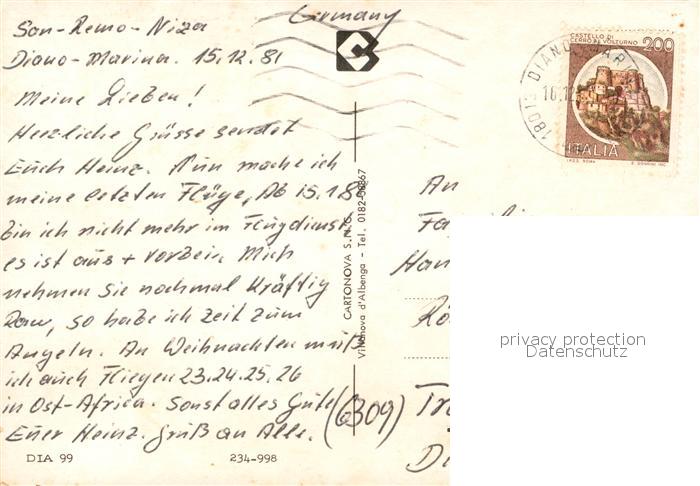 Germany
San-Remo-Niza
Diano-Marina. 15.12.81
Meine Lieben!
Herzliche Grüsse sendet
Euch Heinz. Nun mache ich
meine letzten Flüge, Ab 15.1.8
bin ich nicht mehr im Flugdienst
es ist aus + vorbei. Mich
nehmen Sie nochmal kräftig
ran, so habe ich Zeit zum
Angeln. An Weihnachten muß
ich auch Fliegen 23.24.25.26
in Ost-Africa. Sonst alles Gute
Euer Heinz. Gruß an Alle.
DIA 99
234-998
CARTONOVA S.N.C.
Villanova d'Albenga - Tel. 0182-58867
CASTELLO DI
CERRO AL VOLTURNO
200
ITALIA
I.P.Z.S. ROMA
18013 DIANO MAR
An
Fa
Han
(6309)
Tr
D
privacy protection
Datenschutz